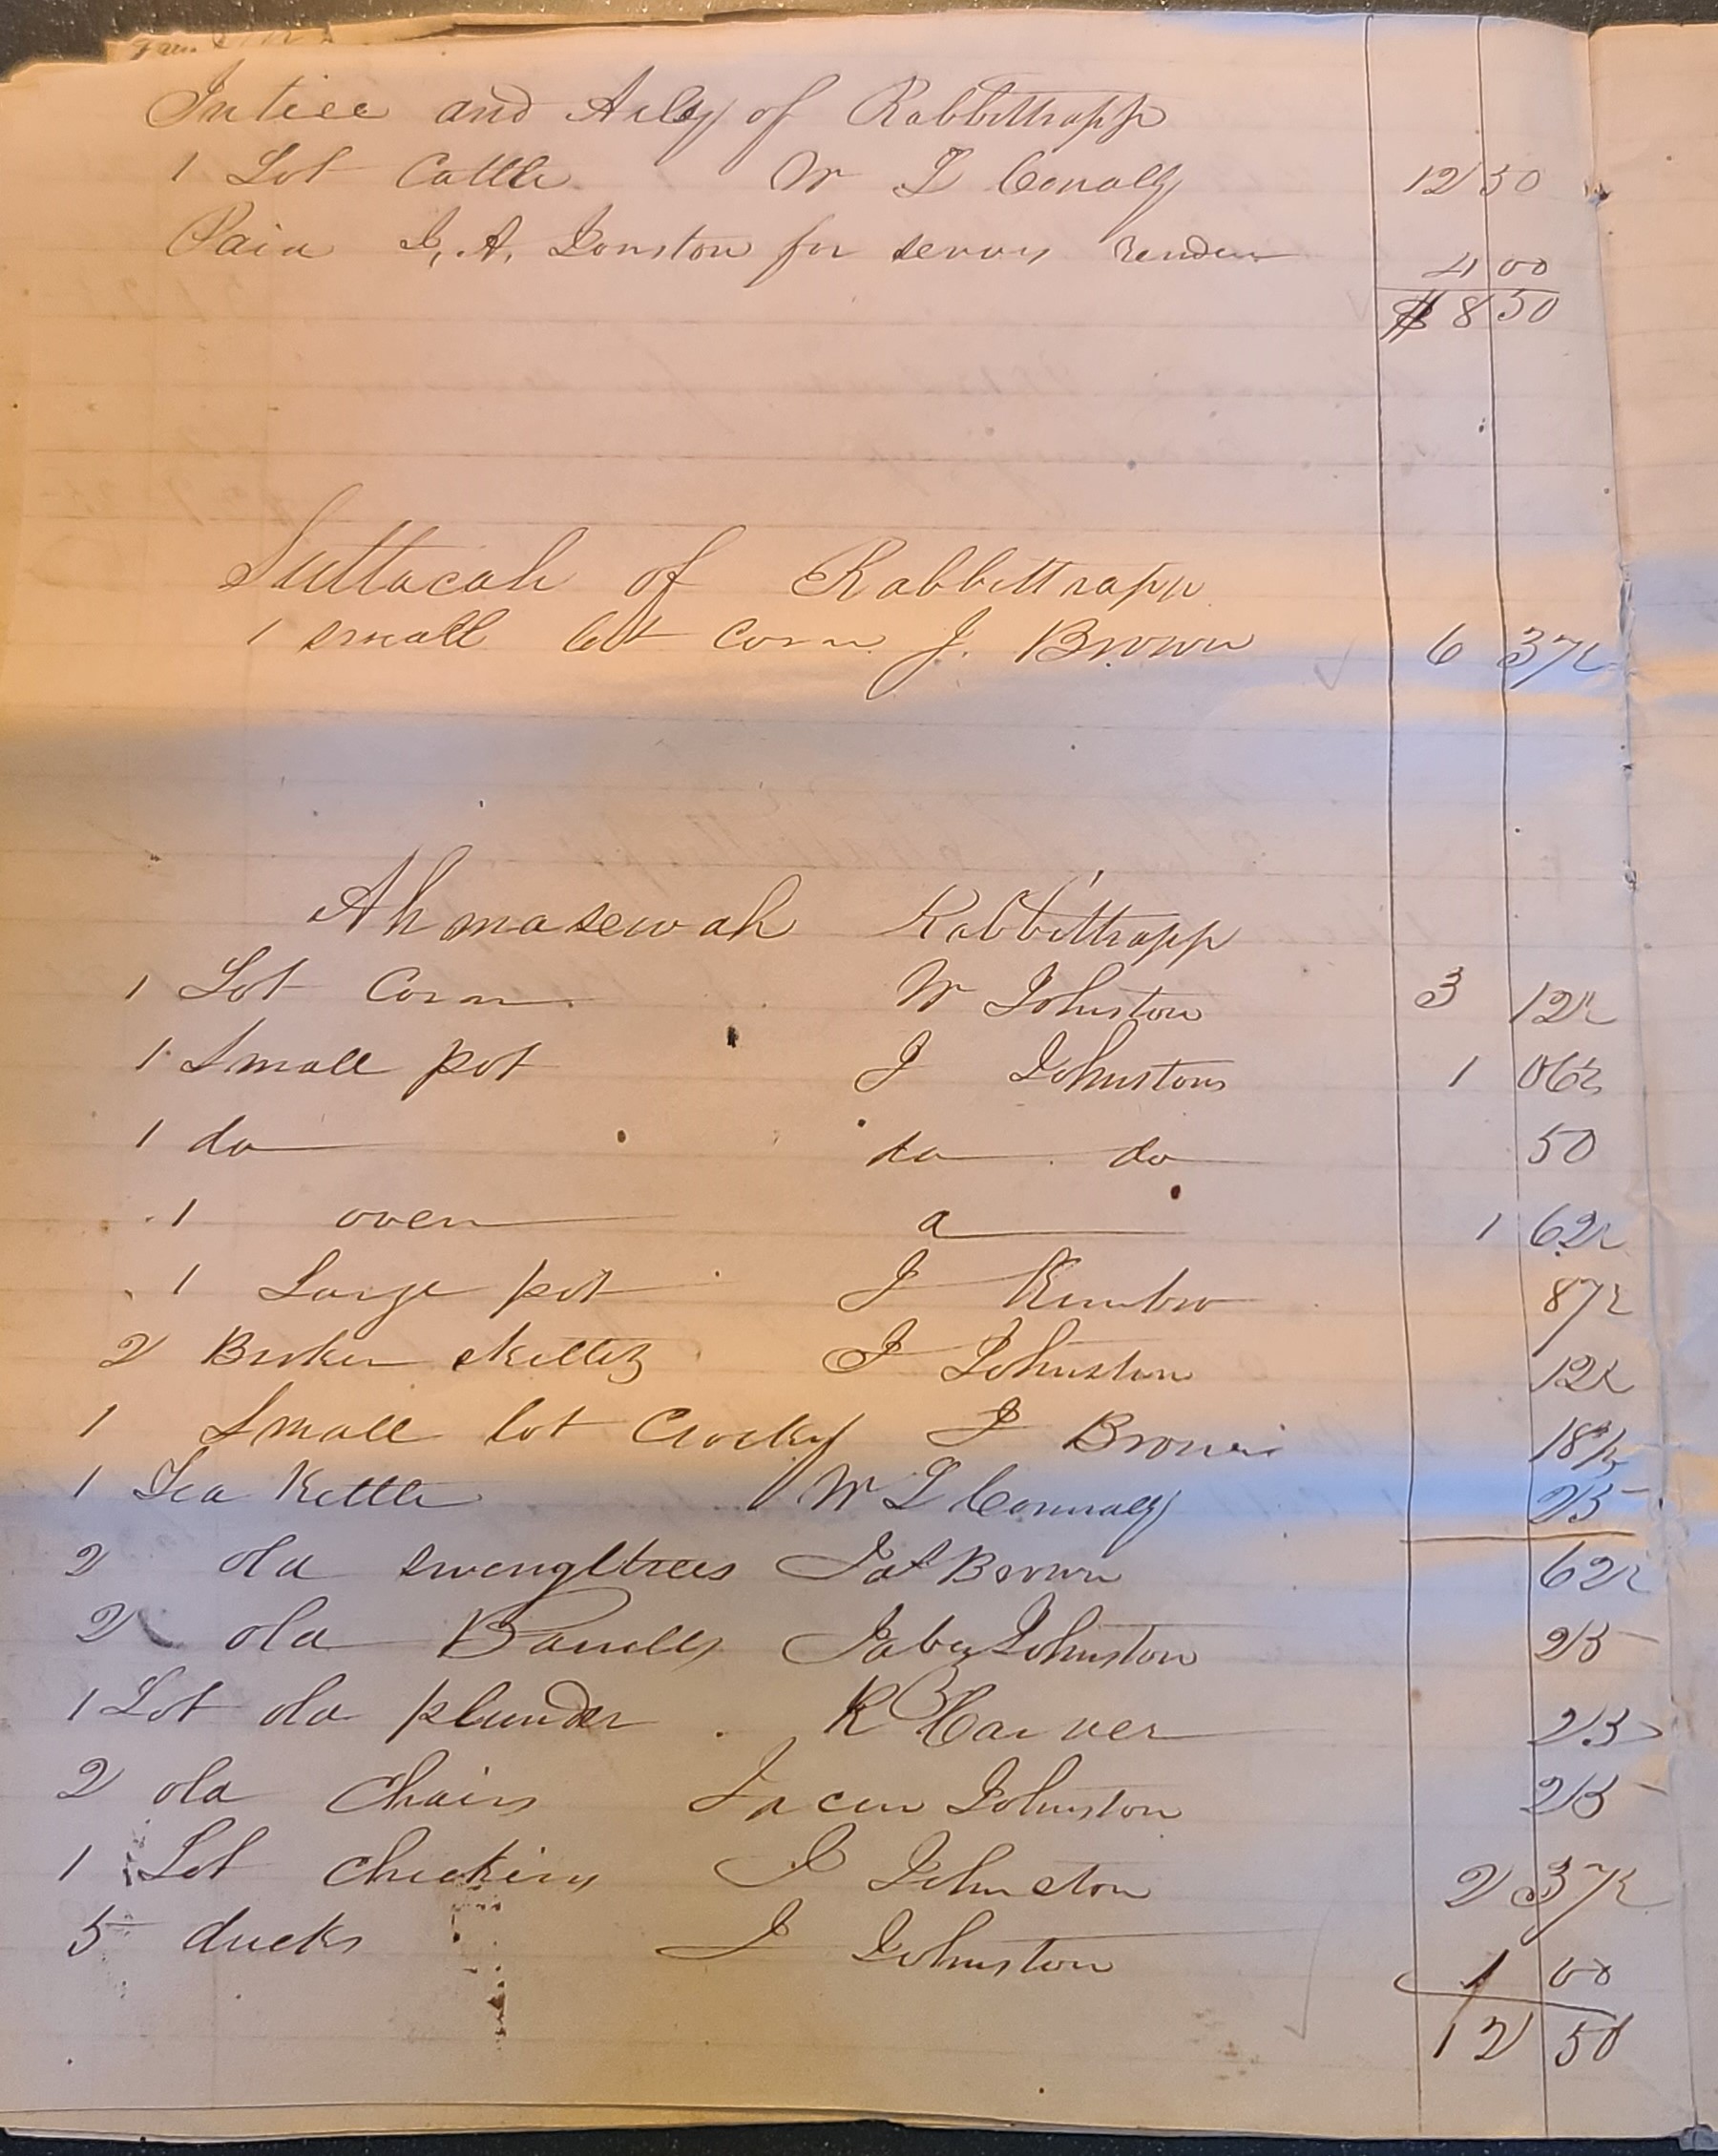 Intice and Arley of Rabbittrapp
1 Lot Cattle W L Conaly 12 50
Paid J. A. Jonston for servis render 4 00
$ 8 50
Suttacah of Rabbittrapp
1 small lot corn J. Brown 6 37½
Ahmasewah Rabbittrapp
1 Lot Corn W Johnston 3 12½
1 Small pot J Johnston 1 06¼
1 do do do 50
1 oven a 1 62½
1 Large pot J Kimbro 87½
2 Broken skillets J Johnston 12½
1 Small lot Crocky J Brown 18¾
1 Tea Kettle W L Connaly 25
2 old swengltrees Jas Brown 62½
2 old Barrells Johnston 25
1 Lot old plunder R B Carver 25
2 old Chairs Johnston 25
1 Lot chickins J Johnston 2 37½
5 ducks J Johnston 1 00
12 50